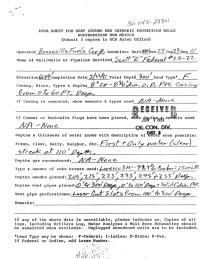 30-045-28801
DATA SHEET FOR DEEP GROUND BED CATHODIC PROTECTION WELLS
NORTHWESTERN NEW MEXICO
(Submit 3 copies to OCD Aztec Office)
Operator Location: Unit Sec 25 Twp 29 Rng 11
Name of Well/Wells or Pipeline Serviced Scott "E" Federal #25-22
Elevation Completion Date Total Depth 300' Land Type* F
Casing, Sizes, Types & Depths
From 0 to 60 FT. Deep.
If Casing is cemented, show amounts & types used N/A - None
RECEIVED
If Cement or Bentonite Plugs have been placed, show depths & amounts used
N/A - None
OIL CON. DIV.
Depths & thickness of water zones with description of water when possible:
Fresh, Clear, Salty, Sulphur, Etc. First + Only water (clear)
streak at 110' Depth.
Depths gas encountered: N/A - None
Type & amount of coke breeze used:
Depths anodes placed:
Depths vent pipes placed:
Vent pipe perforations: From 100' to 300' Deep.
Remarks:
If any of the above data is unavailable, please indicate so. Copies of all
logs, including Drillers Log, Water Analyses & Well Bore Schematics should
be submitted when available. Unplugged abandoned wells are to be included.
*Land Type may be shown: F-Federal; I-Indian; S-State; P-Fee.
If Federal or Indian, add Lease Number.